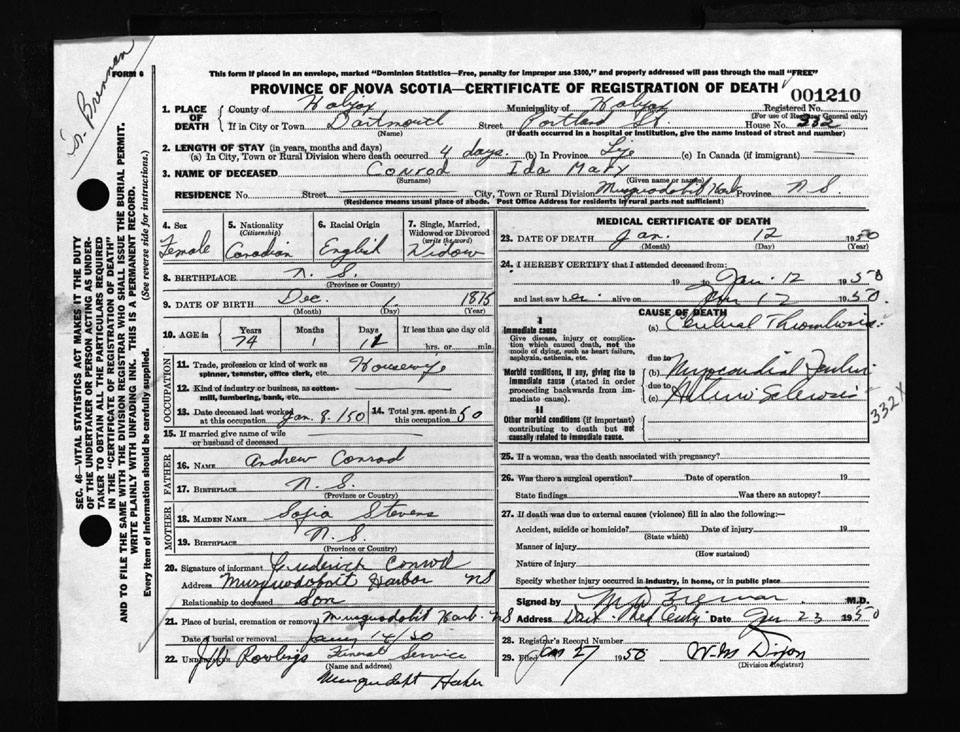 Dr. Brennan
FORM 6
This form if placed in an envelope, marked "Dominion Statistics—Free, penalty for improper use $300," and properly addressed will pass through the mail "FREE"
PROVINCE OF NOVA SCOTIA—CERTIFICATE OF REGISTRATION OF DEATH
001210
1. PLACE OF DEATH
County of Halifax Municipality of Halifax Registered No.
(For use of Registrar General only)
If in City or Town Dartmouth Street Portland St. House No. 232
(Name) (If death occurred in a hospital or institution, give the name instead of street and number)
2. LENGTH OF STAY (in years, months and days)
(a) In City, Town or Rural Division where death occurred 4 days. (b) In Province Life (c) In Canada (if immigrant)
3. NAME OF DECEASED Conrod Ida Mary
(Surname) (Given name or names)
RESIDENCE No. Street City, Town or Rural Division Musquodobit Harb Province N.S.
(Residence means usual place of abode. Post Office Address for residents in rural parts not sufficient)
4. Sex Female
5. Nationality (Citizenship) Canadian
6. Racial Origin English
7. Single, Married, Widowed or Divorced (write the word) Widow
8. BIRTHPLACE N.S.
(Province or Country)
9. DATE OF BIRTH Dec. 1 1875
(Month) (Day) (Year)
10. AGE in Years Months Days If less than one day old
74 1 11 hrs. or min.
OCCUPATION
11. Trade, profession or kind of work as spinner, teamster, office clerk, etc. Housewife
12. Kind of industry or business, as cotton-mill, lumbering, bank, etc.
13. Date deceased last worked at this occupation Jan. 8. /50
14. Total yrs. spent in this occupation 50
15. If married give name of wife or husband of deceased
FATHER
16. NAME Andrew Conrod
17. BIRTHPLACE N.S.
(Province or Country)
MOTHER
18. MAIDEN NAME Sofia Stevens
19. BIRTHPLACE N.S.
(Province or Country)
20. Signature of informant Frederick Conrod
Address Musquodoboit Harbor NS
Relationship to deceased Son
21. Place of burial, cremation or removal Musquodobit Harb. NS
Date of burial or removal Jany 14/50
22. Undertaker J W Rowlings Funeral Service
(Name and address)
MEDICAL CERTIFICATE OF DEATH
23. DATE OF DEATH Jan. 12 1950
(Month) (Day) (Year)
24. I HEREBY CERTIFY that I attended deceased from:
19 to Jan. 12 1950
and last saw her alive on Jan 12 1950.
CAUSE OF DEATH
I
Immediate cause
Give disease, injury or complication which caused death, not the mode of dying, such as heart failure, asphyxia, asthenia, etc.
(a) Cerebral Thrombosis.
due to
Morbid conditions, if any, giving rise to immediate cause (stated in order proceeding backwards from immediate cause).
(b) Myocardial Failure
due to
(c) Arterio Sclerosis
332X
II
Other morbid conditions (if important) contributing to death but not causally related to immediate cause.
25. If a woman, was the death associated with pregnancy?
26. Was there a surgical operation? Date of operation 19
State findings Was there an autopsy?
27. If death was due to external causes (violence) fill in also the following:—
Accident, suicide or homicide? Date of injury 19
(State which)
Manner of injury
(How sustained)
Nature of injury
Specify whether injury occurred in industry, in home, or in public place
Signed by M.D.
Address Dart. Date Jan 23 1950
28. Registrar's Record Number
29. Filed Jan 27 1950 W. M Dixon
(Division Registrar)
SEC. 46—VITAL STATISTICS ACT MAKES IT THE DUTY
OF THE UNDERTAKER OR PERSON ACTING AS UNDER-
TAKER TO OBTAIN ALL THE PARTICULARS REQUIRED
IN THE "CERTIFICATE OF REGISTRATION OF DEATH"
AND TO FILE THE SAME WITH THE DIVISION REGISTRAR WHO SHALL ISSUE THE BURIAL PERMIT.
WRITE PLAINLY WITH UNFADING INK. THIS IS A PERMANENT RECORD.
Every item of information should be carefully supplied. (See reverse side for instructions.)